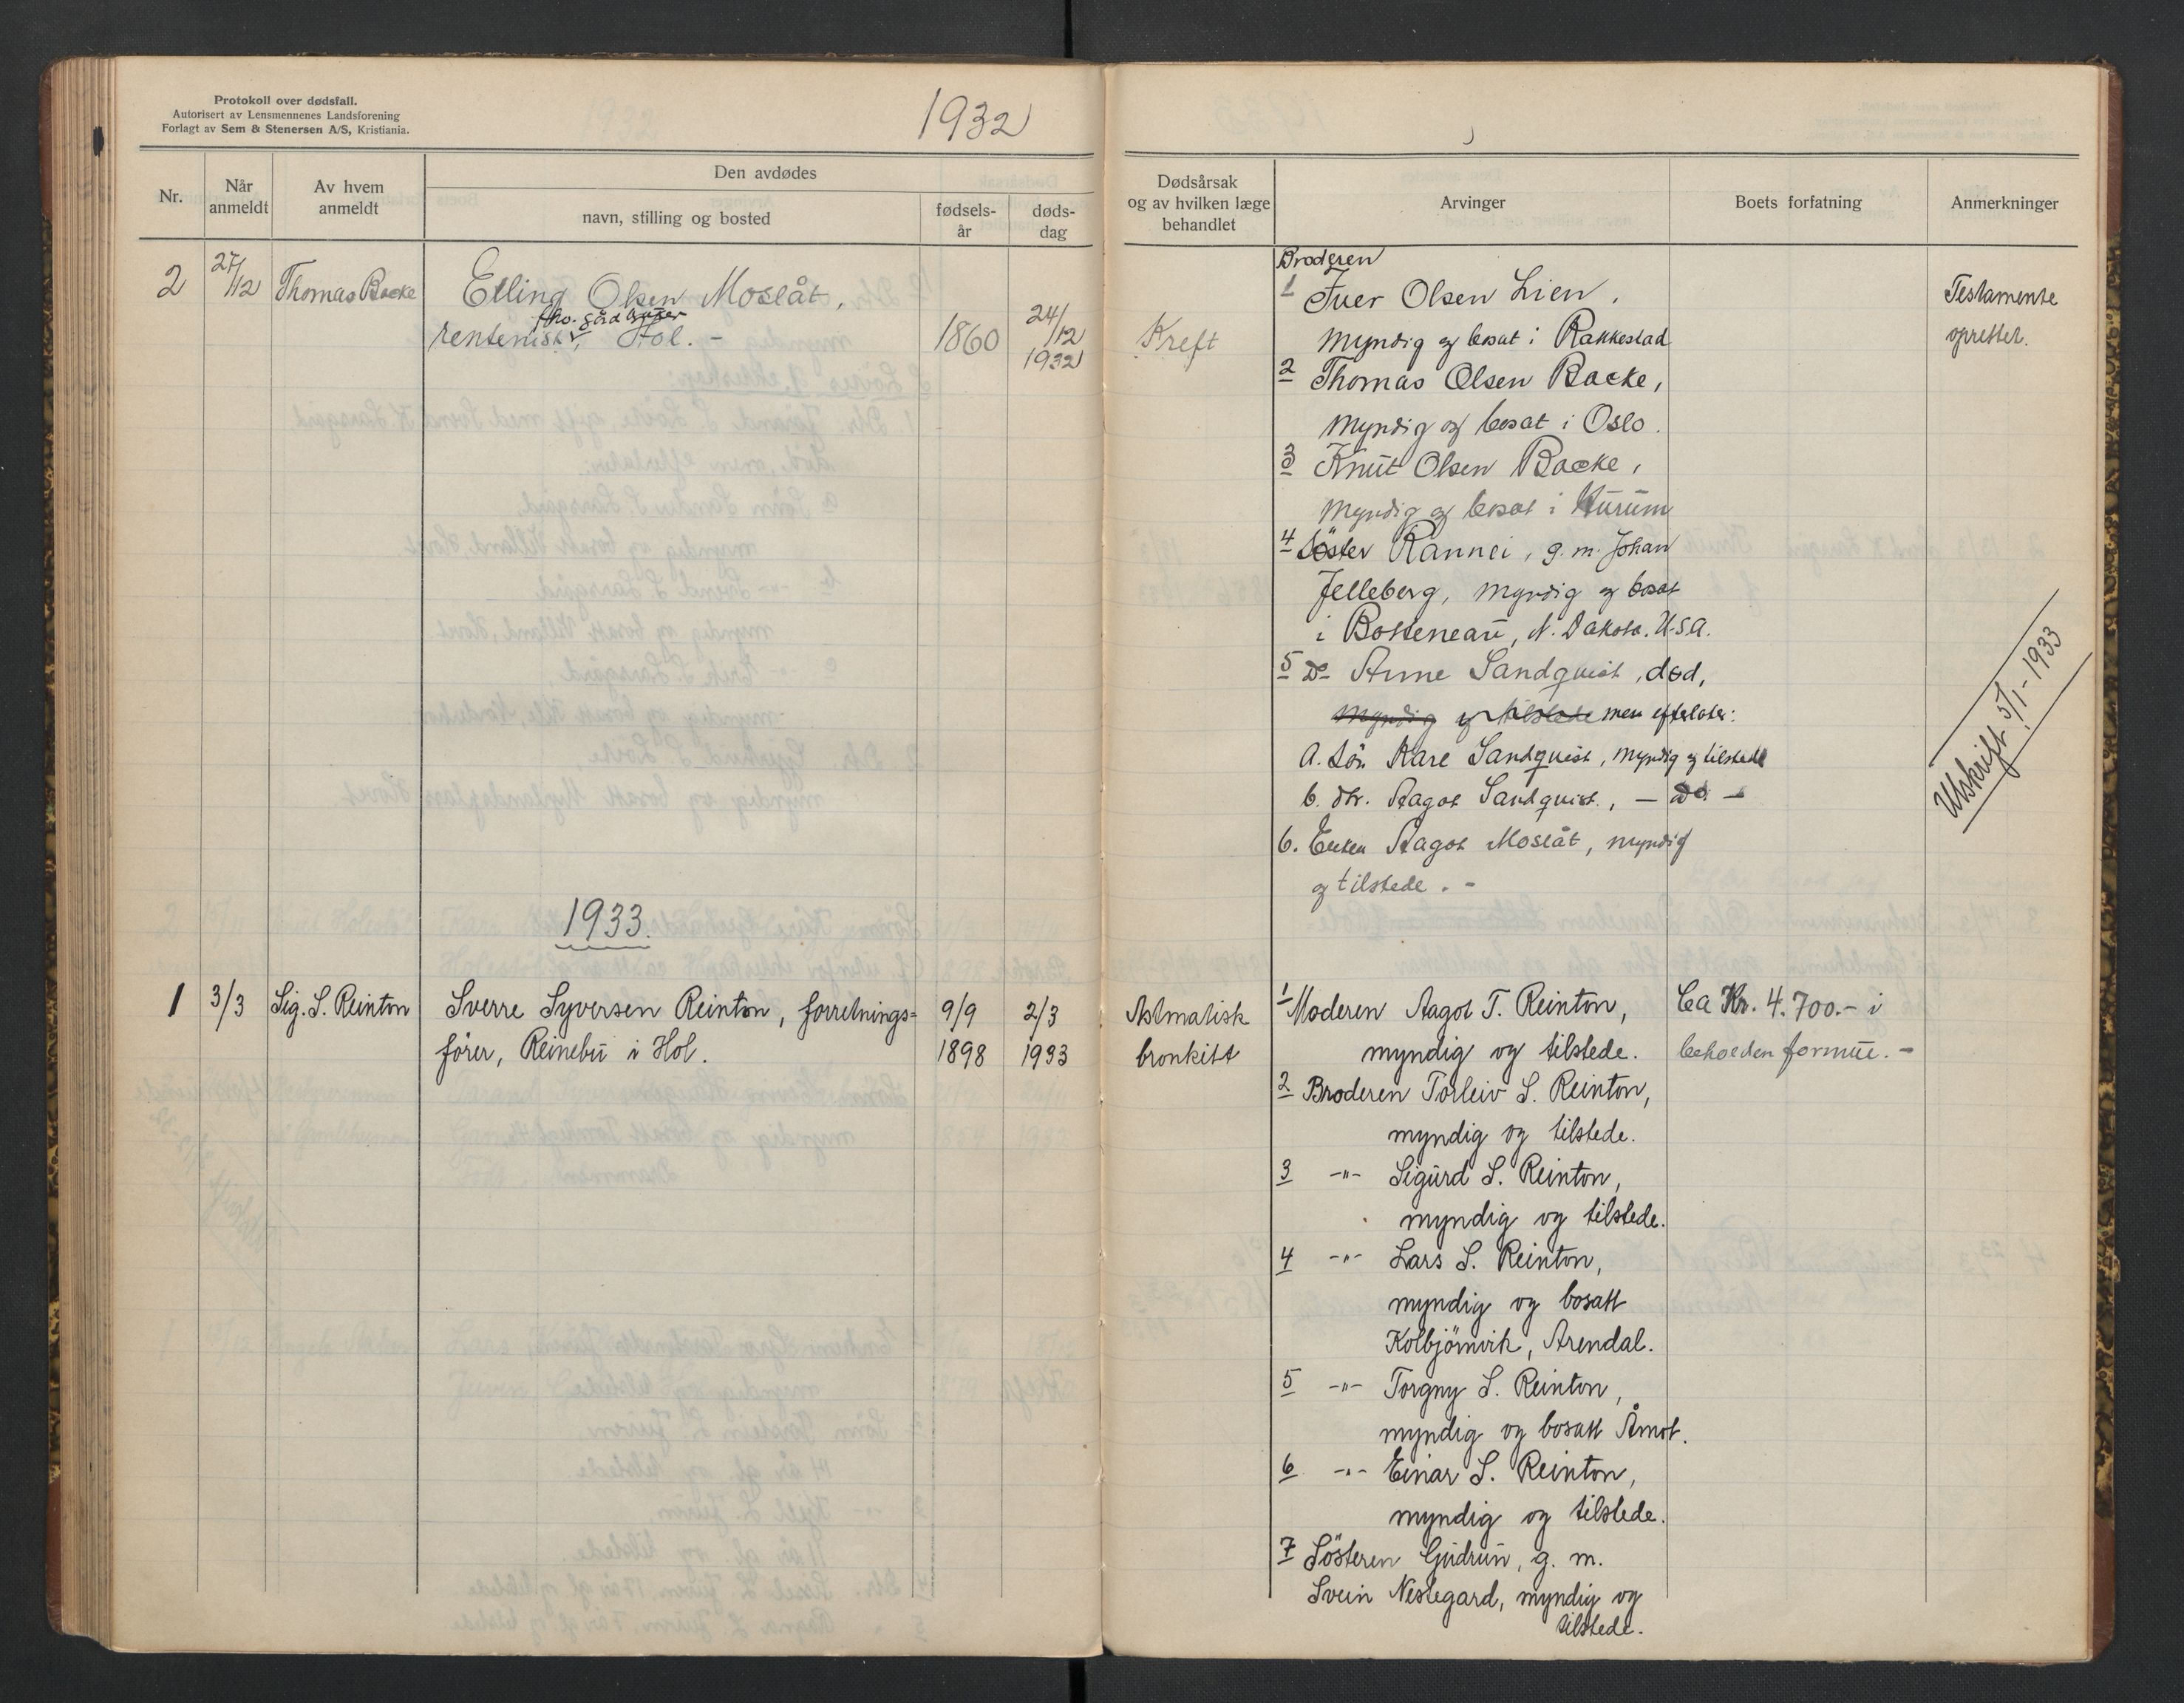 Protokoll over dødsfall.
Autorisert av Lensmennenes Landsforening
Forlagt av Sem & Stenersen A/S, Kristiania.
1932
Nr.
Når anmeldt
Av hvem anmeldt
Den avdødes
navn, stilling og bosted
fødsels-år
døds-dag
Dødsårsak og av hvilken læge behandlet
Arvinger
Boets forfatning
Anmerkninger
2
27/12
Thomas Backe
Elling Olsen Moslåt,
fho. gårdbruker
rentenist, Hol. -
1860
24/12
1932
Kreft
Broderen
1 Iver Olsen Lien,
myndig og bosat i Rakkestad
2 Thomas Olsen Backe,
myndig og bosat i Oslo.
3 Knut Olsen Backe,
myndig og bosat i Hurum
4 Søster Rannei, g. m. Johan
Jelleberg, myndig og bosat
i Botteneau, N. Dakota. U.S.A.
5 Do Anne Sandquist, død,
myndig og tilstede men efterlater:
a. Søn Kare Sandquist, myndig og tilstede
b. dtr. Aagot Sandquist, — Do. —
6. Enken Aagot Moslåt, myndig
og tilstede. -
Testamente
oprettet.
Utskrift 5/1-1933
1933.
1
3/3
Sig. S. Reinton
Sverre Syversen Reinton, forretnings=
fører, Reinebu i Hol.
9/9
1898
2/3
1933
Astmatisk
bronkitt
1 Moderen Aagot T. Reinton,
myndig og tilstede.
2 Broderen Torleiv S. Reinton,
myndig og tilstede.
3 -"- Sigurd S. Reinton,
myndig og tilstede.
4 -"- Lars S. Reinton,
myndig og bosatt
Kolbjörnvik, Arendal.
5 -"- Torgny S. Reinton,
myndig og bosatt Åmot.
6 -"- Einar S. Reinton,
myndig og tilstede.
7 Søsteren Gudrun, g. m.
Svein Neslegard, myndig og
tilstede.
Ca Kr. 4.700.- i
beholden formue. -